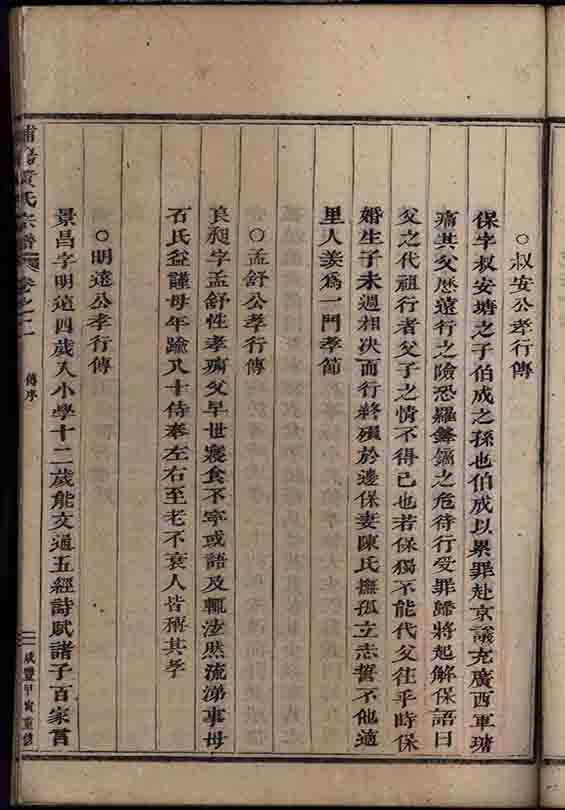 ○叔安公孝行傳
保字叔安塘之子伯成之孫也伯成以累罪赴京議充廣西軍瑭
痛其父歷遠行之險恐羅鋒鏑之危待行受罪歸將起解保語曰
父之代祖行者父子之情不得已也若保獨不能代父往乎時保
婚生子未週相决而行終殞於邊保妻陳氏撫孤立志誓不他適
里人羡爲一門孝節
○孟舒公孝行傳
良昶字孟舒性孝痛父早世寢食不寧或語及輒泫然流涕事母
石氏益謹母年踰八十侍奉左右至老不衰人皆稱其孝
○明遠公孝行傳
景昌字明遠四歲入小學十二歲能文通五經詩賦諸子百家言
黃氏宗譜 卷之二 傳序 二 咸豐甲寅重修